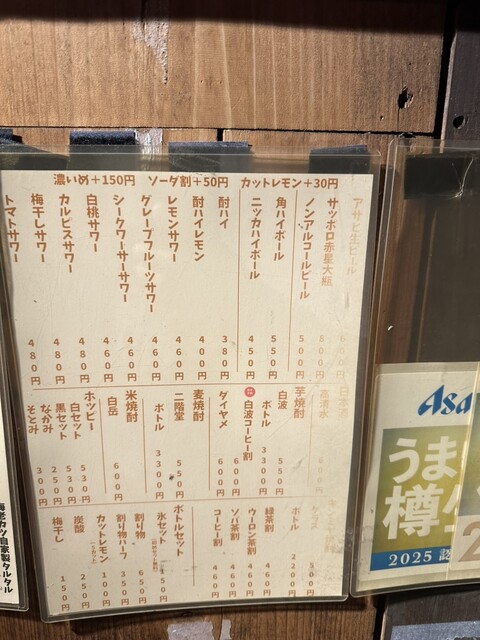 濃いめ+150円 ソーダ割+50円 カットレモン+30円
アサヒ生ビール
サッポロ赤星大瓶 800円
ノンアルコールビール 500円
角ハイボール 550円
ニッカハイボール 450円
酎ハイ 380円
酎ハイレモン 400円
レモンサワー 460円
グレープフルーツサワー 460円
シークワーサーサワー 460円
白桃サワー 480円
カルピスサワー 480円
梅干しサワー 480円
トマトサワー 480円
日本酒
高清水
芋焼酎
白波 550円
ボトル 3300円
白波コーヒー割 600円
ダイヤメ 600円
麦焼酎
二階堂 550円
ボトル 3300円
米焼酎
白岳 600円
ホッピー
白セット 530円
黒セット 530円
なかみ 250円
そとみ 300円
グラス 500円
ボトル 2200円
緑茶割 460円
ウーロン茶割 460円
ソバ茶割 460円
コーヒー割 460円
ボトルセット
氷セット
割り物 650円
割り物ハーフ 350円
カットレモン 100円
炭酸 250円
梅干し 150円
海老カツ自家製タルタル
Asa
うま
樽生
2025 認